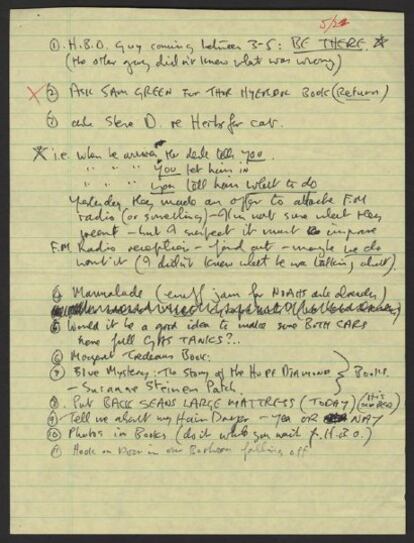 5/24
① H.B.O. Guy coming between 3-5: BE THERE. *
(the other guy didn't know what was wrong)
X ② ASK SAM GREEN FOR THOR HYERDAL BOOK (RETURN)
③ ask Steve D. re Herbs for cats.
* i.e. when he arrives the desk tells YOU.
" " " " YOU let him in
" " " " you tell him what to do
Yesterday they made an offer to attach F.M
radio (or something) - I'm not sure what they
meant - but I suspect it meant to improve
F.M Radio reception - find out - maybe we do
want it (I didn't know what he was talking about).
④ Marmalade (enuff jam for NOAHS ark already)
⑤ Would it be a good idea to make sure BOTH CARS
have full GAS TANKS?..
⑥ Margaret Trudeaus Book:
⑦ Blue Mystery: The Story of the HOPE DIAMOND } BOOKS.
- Susanne Steinem Patch
⑧ PUT BACK SEANS LARGE MATTRESS (TODAY) (HE'S
⑨ Tell me about my Hair Dryer - YEA OR NAY
⑩ Photos in Books (do it while you wait for H.B.O.)
Hook on Door in our Bathroom falling off.